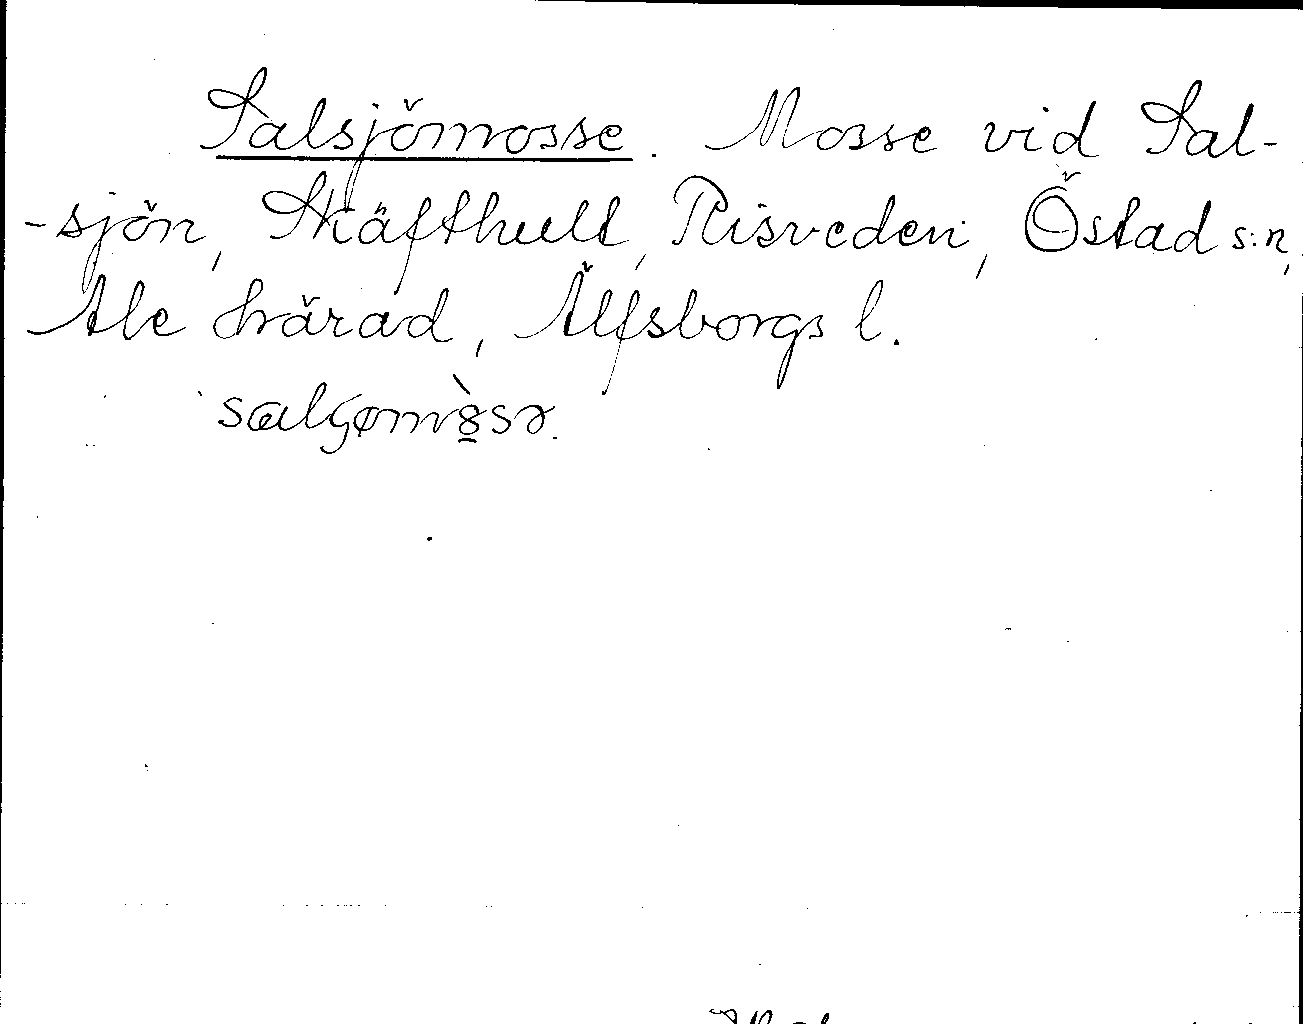 Salsjömosse. Mosse vid Sal-
-sjön, Skäfthult, Risveden, Östad s:n,
Ale härad, Älfsborgs l.